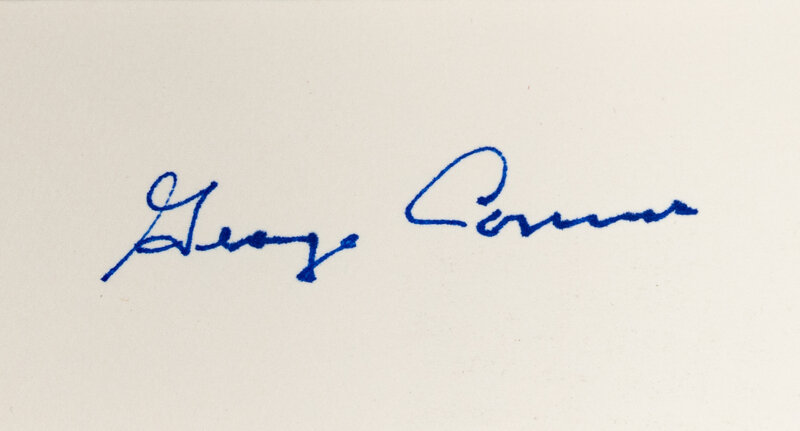 George Connor